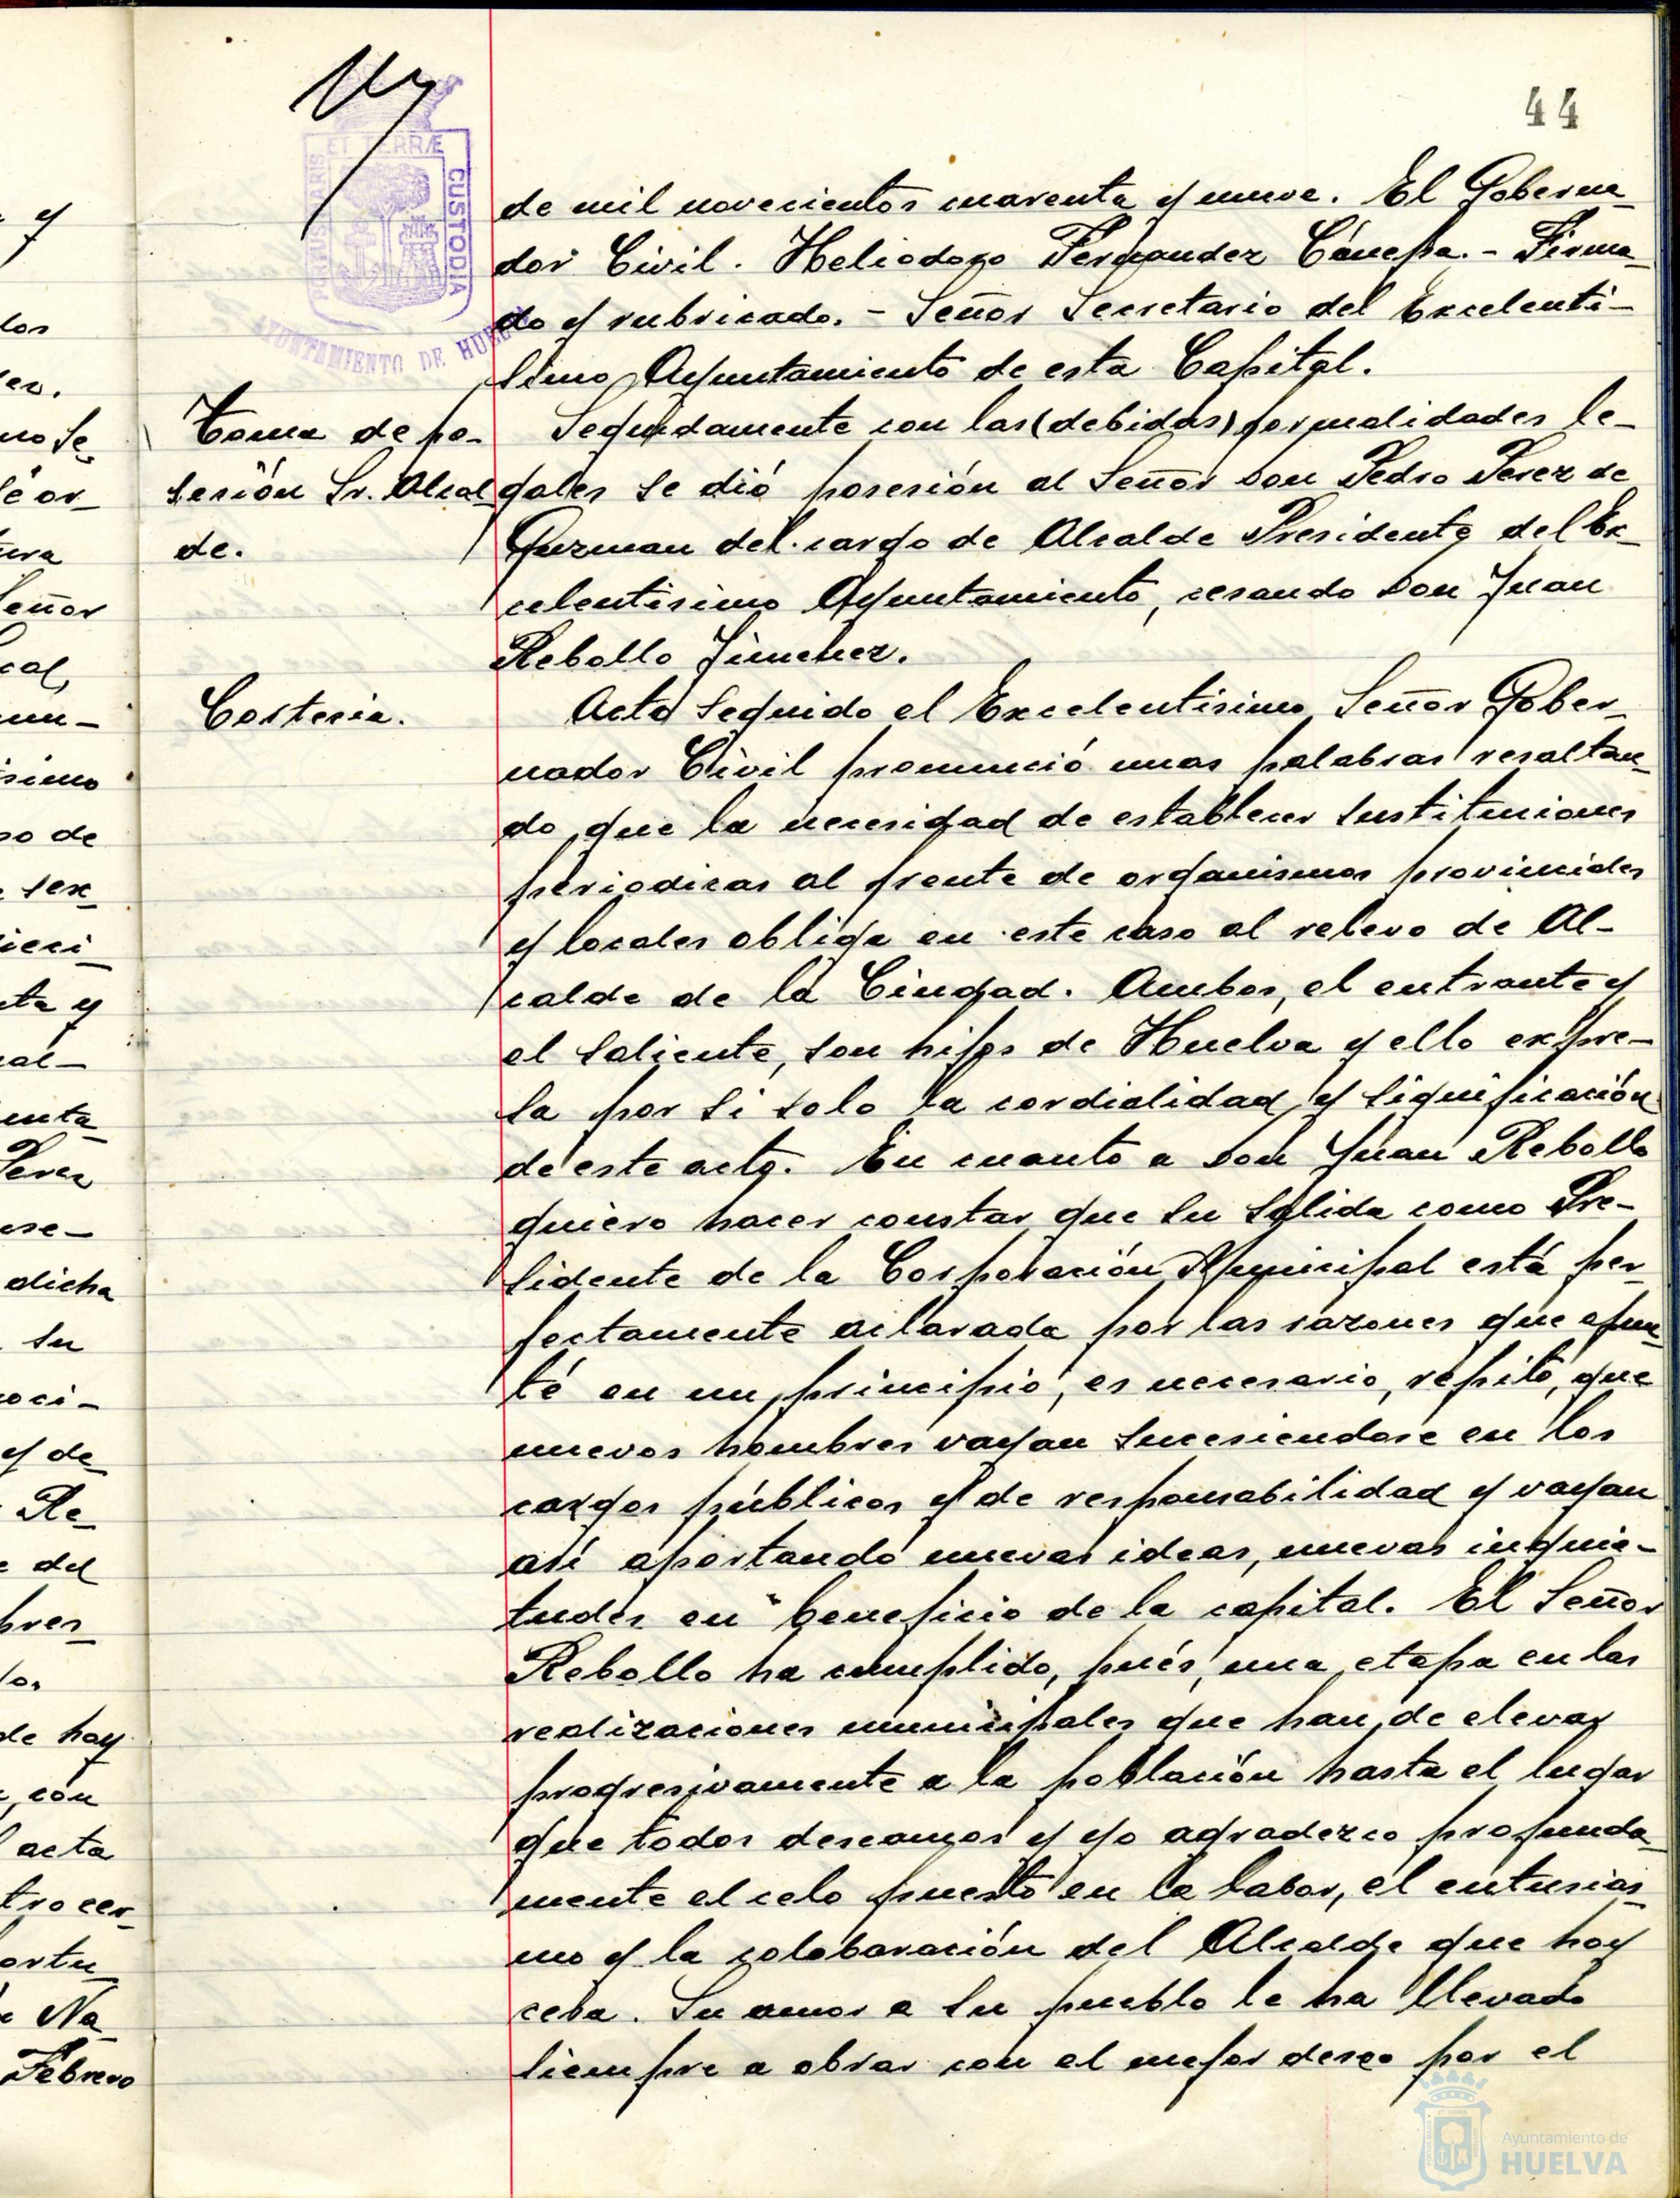 44
de mil novecientos cuarenta y nueve. El Goberna-
dor Civil. Heliodoro Fernandez Cánepa. - Firma-
do y rubricado. - Señor Secretario del Excelenti-
simo Ayuntamiento de esta Capital.
Toma de po-
sesión Sr. Alcal-
de.
Seguidamente con las (debidas) formalidades le-
gales se dió posesión al Señor Don Pedro Perez de
Guzman del cargo de Alcalde Presidente del Ex-
celentisimo Ayuntamiento, cesando Don Juan
Rebollo Jimenez.
Cortesia.
Acto seguido el Excelentisimo Señor Gober-
nador Civil pronunció unas palabras resaltan-
do que la necesidad de establecer sustituciones
periodicas al frente de organismos provinciales
y locales obliga en este caso al relevo de Al-
calde de la Ciudad. Ambos, el entrante y
el saliente, son hijos de Huelva y ello expre-
sa por si solo la cordialidad y significación
de este acto. En cuanto a Don Juan Rebollo
quiero hacer constar que su salida como Pre-
sidente de la Corporación Municipal está per-
fectamente aclarada por las razones que apun-
té en un principio, es necesario, repito, que
nuevos hombres vayan sucesiendose en los
cargos públicos y de responsabilidad y vayan
asi aportando nuevas ideas, nuevas inquie-
tudes en beneficio de la capital. El Señor
Rebollo ha cumplido, pués, una etapa en las
realizaciones municipales que han de elevar
progresivamente a la población hasta el lugar
que todos deseamos y yo agradezco profunda-
mente el celo puesto en la labor, el entusias-
mo y la colaboración del Alcalde que hoy
cesa. Su amor a su pueblo le ha llevado
siempre a obrar con el mejor deseo por el
PORTUS MARIS
ET TERRÆ
CUSTODIA
AYUNTAMIENTO DE HUELVA
y
los
no se
é or-
Señor
cal,
mu-
simo
so de
ta y
cal-
enta
Perez
ese-
dicha
su
oci-
y de
Re-
e del
bres
de hoy
con
acta
tro cer-
ortu-
Na-
Febrero
Ayuntamiento de
HUELVA